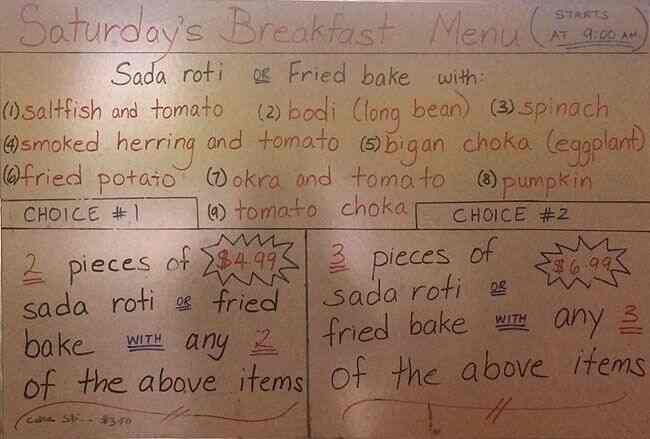 Saturday's Breakfast Menu (STARTS AT 9:00 AM)
Sada roti OR Fried bake with:
(1) saltfish and tomato (2) bodi (long bean) (3) spinach
(4) smoked herring and tomato (5) bigan choka (eggplant)
(6) fried potato (7) okra and tomato (8) pumpkin
(9) tomato choka
CHOICE #1
2 pieces of $4.99
sada roti OR fried
bake WITH any 2
of the above items
CHOICE #2
3 pieces of $6.99
sada roti OR
fried bake WITH any 3
of the above items